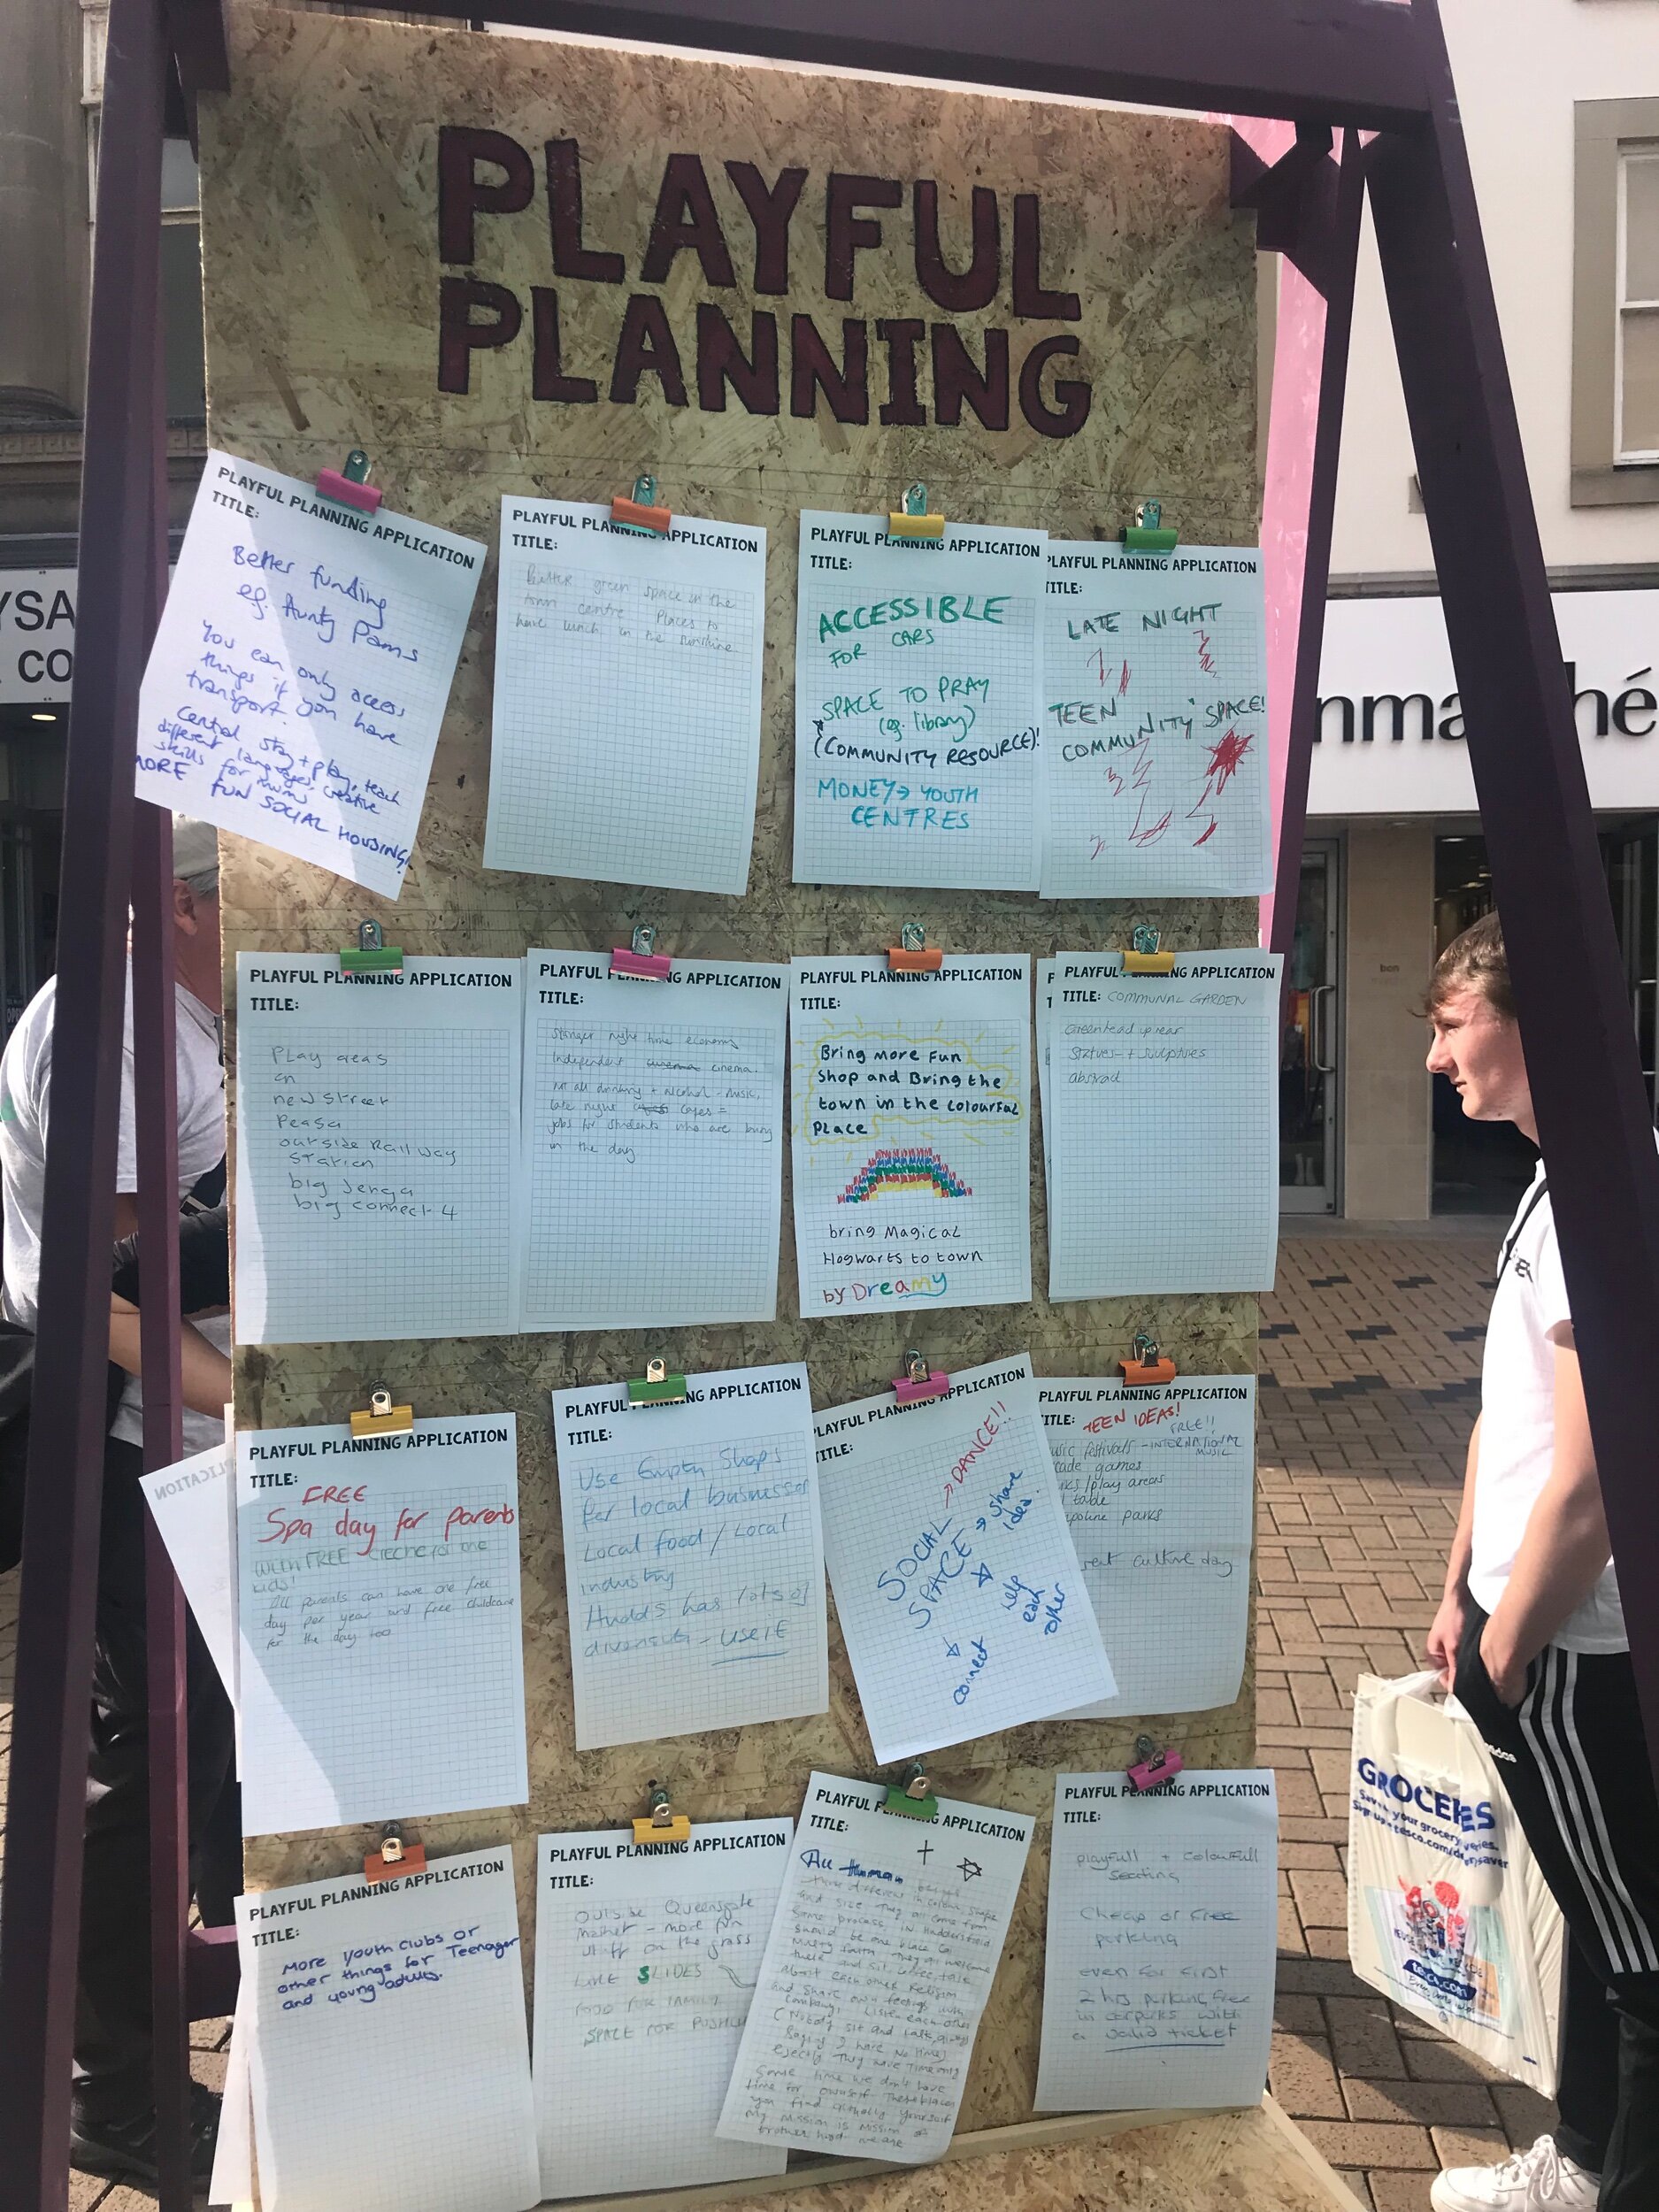 PLAYFUL
PLANNING
PLAYFUL PLANNING APPLICATION
TITLE:
Better funding
eg. Aunty Pams
You can only access
things if you have
transport.
Central stay + play, teach
different languages, creative
skills for mums
MORE FUN SOCIAL HOUSING!
PLAYFUL PLANNING APPLICATION
TITLE:
Better green space in the
town centre Places to
have lunch in the sunshine
PLAYFUL PLANNING APPLICATION
TITLE:
ACCESSIBLE
FOR CARS
SPACE TO PRAY
(eg. library)
(COMMUNITY RESOURCE)!
MONEY → YOUTH
CENTRES
PLAYFUL PLANNING APPLICATION
TITLE:
LATE NIGHT
TEEN
COMMUNITY SPACE!
PLAYFUL PLANNING APPLICATION
TITLE:
Play areas
on
new street
Peasa
outside Railway
Station
big Jenga
big connect 4
PLAYFUL PLANNING APPLICATION
TITLE:
Stronger night time economy
Independent cinema.
Not all drinking + alcohol - music,
late night cafes =
jobs for students who are busy
in the day
PLAYFUL PLANNING APPLICATION
TITLE:
Bring more Fun
Shop and Bring the
town in the colourful
Place
bring Magical
Hogwarts to town
by Dreamy
PLAYFUL PLANNING APPLICATION
TITLE: COMMUNAL GARDEN
Greenhead up rear
Statues + sculptures
abstract
PLAYFUL PLANNING APPLICATION
TITLE:
FREE
Spa day for parents
with FREE creche for the
kids!
All parents can have one free
day per year and free childcare
for the day too
PLAYFUL PLANNING APPLICATION
TITLE:
Use Empty Shops
for local businesses
Local food / Local
industry
Hudds has lots of
diversity - USE IT
PLAYFUL PLANNING APPLICATION
TITLE:
SOCIAL
SPACE
→ DANCE!!
→ share
idea.
→ help
each
other
→ connect
PLAYFUL PLANNING APPLICATION
TITLE: TEEN IDEAS!
FREE!!
music festivals - INTERNATIONAL
MUSIC
games
/play areas
table
parks
culture day
PLAYFUL PLANNING APPLICATION
TITLE:
More youth clubs or
other things for Teenager
and young adults.
PLAYFUL PLANNING APPLICATION
TITLE:
Outside Queensgate
market - more fun
stuff on the grass
LIKE SLIDES
FOOD FOR FAMILY
SPACE FOR
PLAYFUL PLANNING APPLICATION
TITLE:
All human beings
those different in colour, shape
and size they all come from
same process, in Huddersfield
should be one place to
every faith they all welcome
there and sit, coffee, talk
about each other Religion
and share own feelings with
company, Listen each other
(Nobody sit and talk, always
saying I have no time)
they have time only
some time we don't have
time for ownself. These places
you find actually yourself
my mission is mission of
brother hood we are
PLAYFUL PLANNING APPLICATION
TITLE:
playfull + colourfull
seating
Cheap or free
parking
even for first
2 hrs parking free
in carparks with
a valid ticket
YSA
CO
nma hé
bon
GROCERIES
Save your grocery
tesco.com